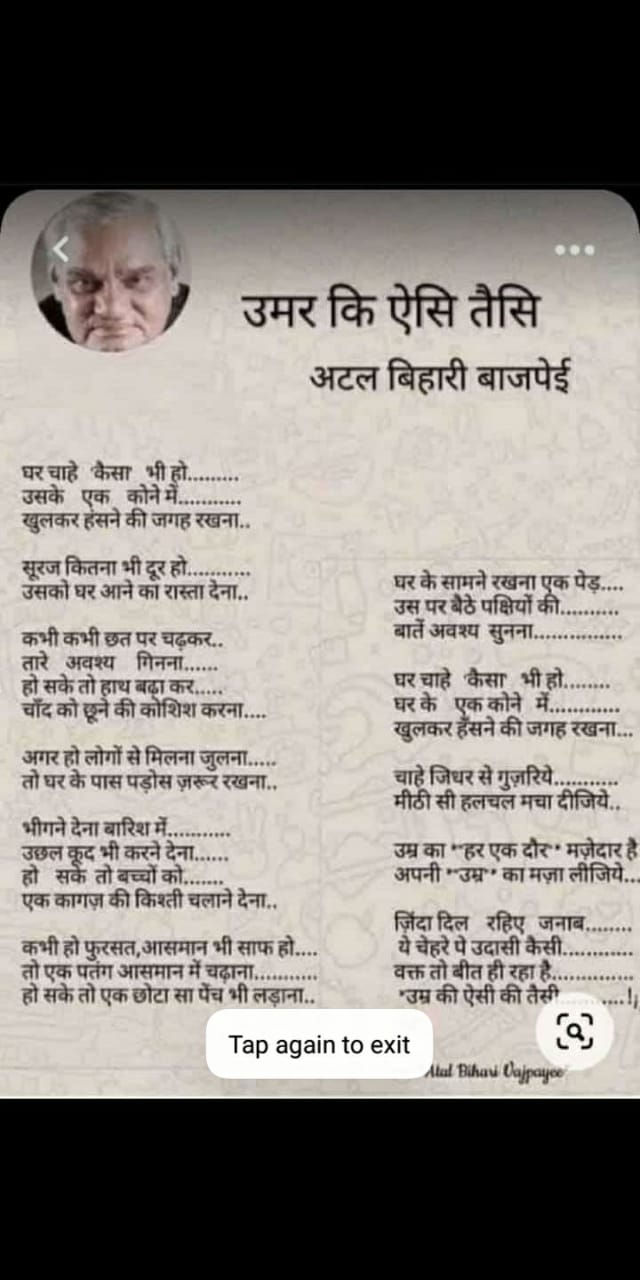 उमर कि ऐसि तैसि
अटल बिहारी बाजपेई
घर चाहे 'कैसा' भी हो.........
उसके एक कोने में...........
खुलकर हंसने की जगह रखना..
सूरज कितना भी दूर हो...........
उसको घर आने का रास्ता देना..
कभी कभी छत पर चढ़कर..
तारे अवश्य गिनना......
हो सके तो हाथ बढ़ा कर.....
चाँद को छूने की कोशिश करना....
अगर हो लोगों से मिलना जुलना.....
तो घर के पास पड़ोस ज़रूर रखना..
भीगने देना बारिश में...........
उछल कूद भी करने देना......
हो सके तो बच्चों को.......
एक कागज़ की किश्ती चलाने देना..
कभी हो फुरसत,आसमान भी साफ हो....
तो एक पतंग आसमान में चढ़ाना...........
हो सके तो एक छोटा सा पेंच भी लड़ाना..
घर के सामने रखना एक पेड़....
उस पर बैठे पक्षियों की..........
बातें अवश्य सुनना...............
घर चाहे 'कैसा' भी हो........
घर के एक कोने में............
खुलकर हँसने की जगह रखना...
चाहे जिधर से गुज़रिये...........
मीठी सी हलचल मचा दीजिये..
उम्र का **हर एक दौर** मज़ेदार है
अपनी **उम्र** का मज़ा लीजिये...
ज़िंदा दिल रहिए जनाब........
ये चेहरे पे उदासी कैसी............
वक्त तो बीत ही रहा है..............
*उम्र की ऐसी की तैसी...........!
Tap again to exit
Atal Bihari Vajpayee